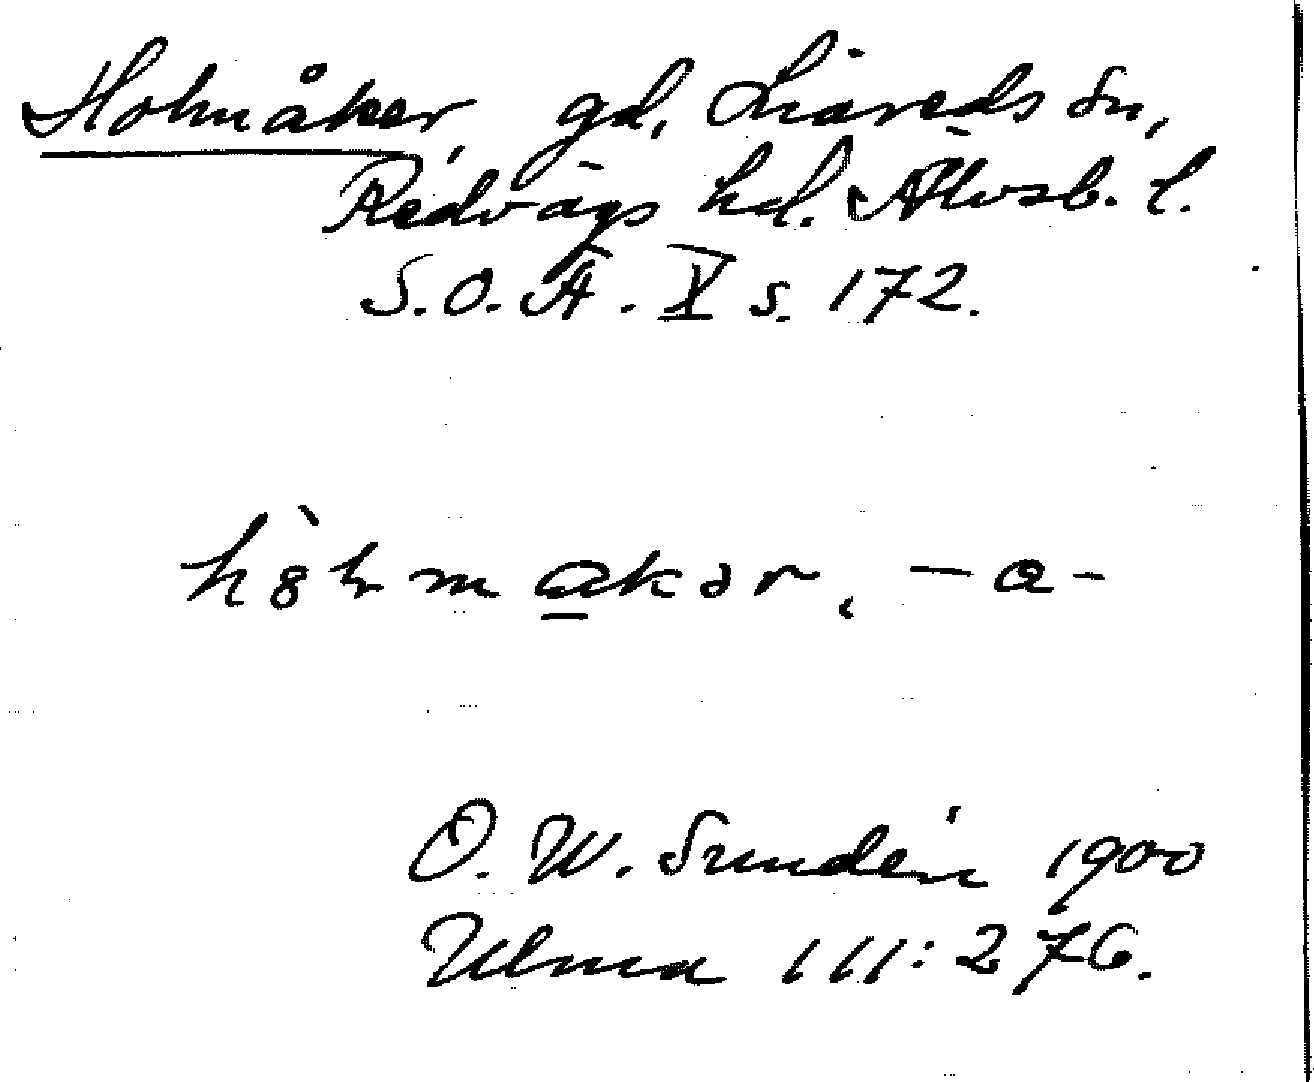 Holmåker, gd, Liareds sn,
Redvägs hd. Älvsb. l.
S.O.Ä. X s. 172.
-a-
O. W. Sundén 1900
Ulma 111:276.